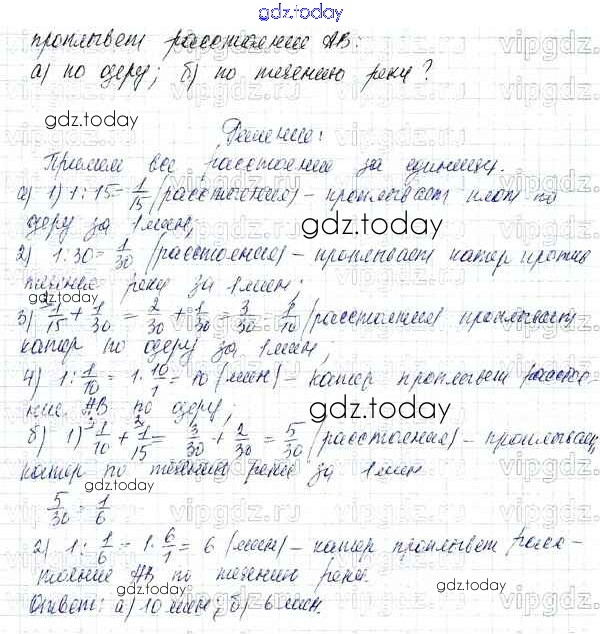 gdz.today
проплывет расстояние AB:
а) по озеру; б) по течению реки?
gdz.today
Решение:
Примем все расстояние за единицу.
а) 1) 1:15=1/15 (расстояния) – проплывает плот по
озеру за 1 мин;
gdz.today
2) 1:30=1/30 (расстояния) – проплывает катер против
течения реки за 1 мин;
gdz.today
3) 1/15 + 1/30 = 2/30 + 1/30 = 3/30 = 1/10 (расстояния) проплывает
катер по озеру за 1 мин;
4) 1:1/10 = 1·10/1 = 10 (мин) – катер проплывет расстоя-
ние AB по озеру;
gdz.today
б) 1) 1/10 + 1/15 = 3/30 + 2/30 = 5/30 (расстояния) – проплывает
катер по течению реки за 1 мин
gdz.today
5/30 = 1/6
2) 1:1/6 = 1·6/1 = 6 (мин) – катер проплывет расс-
тояние AB по течению реки.
gdz.today
Ответ: а) 10 мин; б) 6 мин.
gdz.today